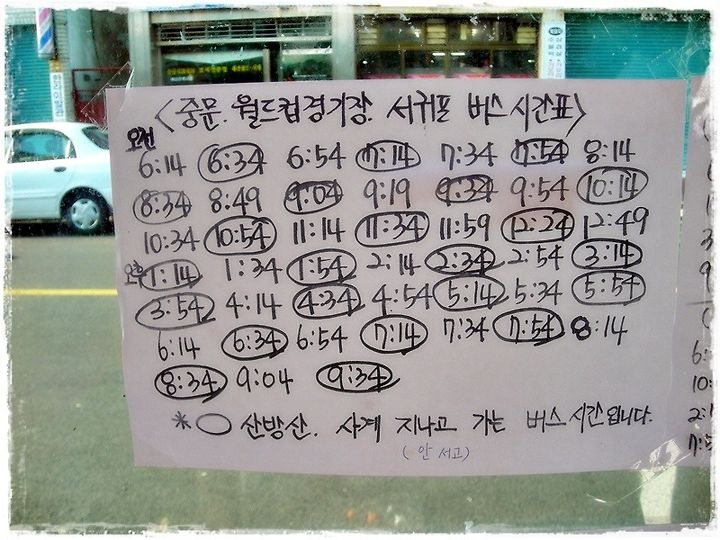 <중문. 월드컵경기장. 서귀포 버스시간표>
오전
6:14 6:34 6:54 7:14 7:34 7:54 8:14
8:34 8:49 9:04 9:19 9:34 9:54 10:14
10:34 10:54 11:14 11:34 11:59 12:24 12:49
오후 1:14 1:34 1:54 2:14 2:34 2:54 3:14
3:54 4:14 4:34 4:54 5:14 5:34 5:54
6:14 6:34 6:54 7:14 7:34 7:54 8:14
8:34 9:04 9:34
*○ 산방산. 사계 지나고 가는 버스시간입니다.
(안 서고)